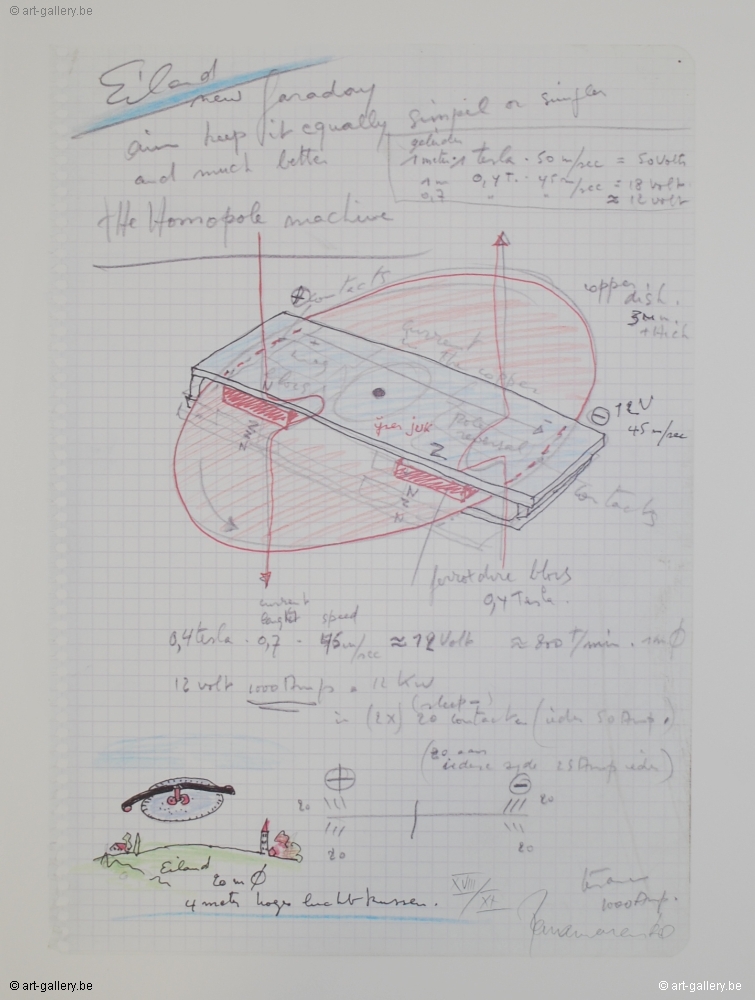 © art-gallery.be
© art-gallery.be
Eiland
new Faraday
aim keep it equally simpel or simpler
and much better
geleider
1 meter · 1 tesla · 50 m/sec = 50 Volts
1m 0,4 T. · 45 m/sec = 18 volt
0,7 " " ≈ 12 volt
tHe Homopole machine
+ contacts
copper
dish.
3 m.m.
current
in the copper
- 12V
45 m/sec
pole
reversal
ÿzer juk
Z
N N Z
contacts
Z
ferroxdure blocs
0,4 Tesla.
current
lenght speed
0,4 tesla · 0,7 · 45 m/sec ≈ 12 Volt ≈ 800 T/min. 1m Ø
12 volt 1000 Amp = 12 KW
(sleep=)
in (2x) 20 contacten (ieder 50 Amp.)
(20 aan
iedere zyde 25 Amp ieder)
+ -
20 20
20 20
Eiland
20 m Ø
4 meter hoge luchtkussen.
XVIII/XI
1000 Amp.
Panamarenko
© art-gallery.be
© art-gallery.be